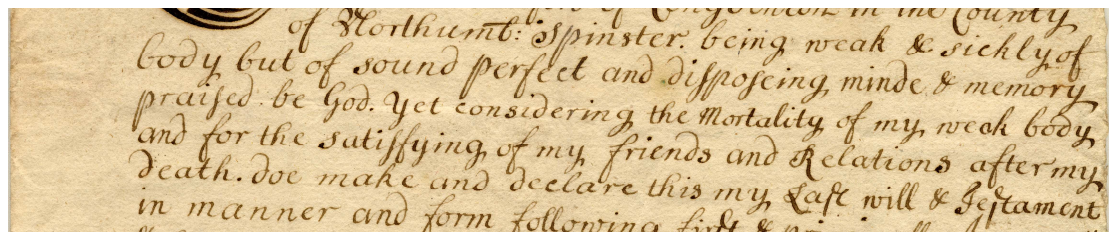 of in the County
of Northumb: Spinster. being weak & sickly of
body but of sound perfect and disposeing minde & memory
praised be God. Yet considering the Mortality of my weak body
and for the satisfying of my friends and Relations after my
death. doe make and declare this my Last will & Testament
in manner and form following first &